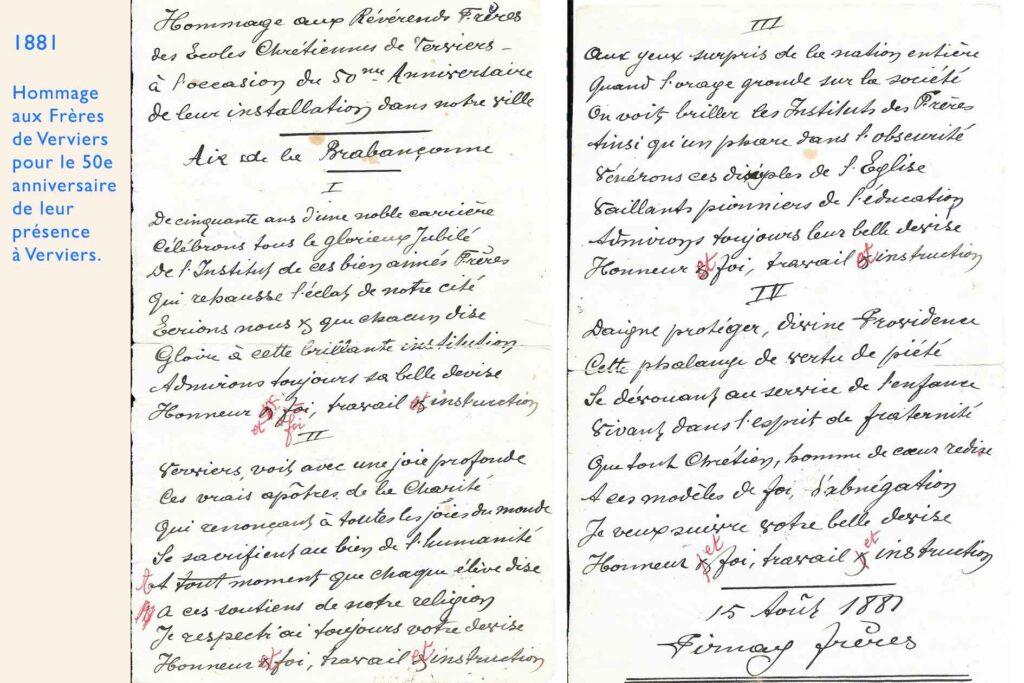 1881
Hommage
aux Frères
de Verviers
pour le 50e
anniversaire
de leur
présence
à Verviers.
Hommage aux Révérends Frères
des Écoles Chrétiennes de Verviers -
à l'occasion du 50me Anniversaire
de leur installation dans notre ville
Air de la Brabançonne
I
De cinquante ans d'une noble carrière
Célébrons tous le glorieux Jubilé
De l'Institut de ces bien aimés Frères
Qui rehausse l'éclat de notre cité
Écrions nous & que chacun dise
Gloire à cette brillante institution
Admirons toujours sa belle devise
Honneur et foi, travail et instruction
et foi
II
Verviers, voit avec une joie profonde
Ces vrais apôtres de la Charité
Qui renonçant à toutes les joies du monde
Se sacrifient au bien de l'humanité
A tout moment que chaque élève dise
A ces soutiens de notre religion
Je respect'ai toujours votre devise
Honneur et foi, travail et instruction
III
Aux yeux surpris de la nation entière
Quand l'orage gronde sur la société
On voit briller les Instituts des Frères
Ainsi qu'un phare dans l'obscurité
Vénérons ces disciples de l'Église
Vaillants pionniers de l'éducation
Admirons toujours leur belle devise
Honneur et foi, travail et instruction
IV
Daigne protéger, divine Providence
Cette phalange de vertu de piété
Se dévouant au service de l'enfance
Vivant dans l'esprit de fraternité
Que tout Chrétien, homme de cœur redise
A ces modèles de foi, d'abnégation
Je veux suivre votre belle devise
Honneur et foi, travail et instruction
15 Août 1881
Pirnay frères